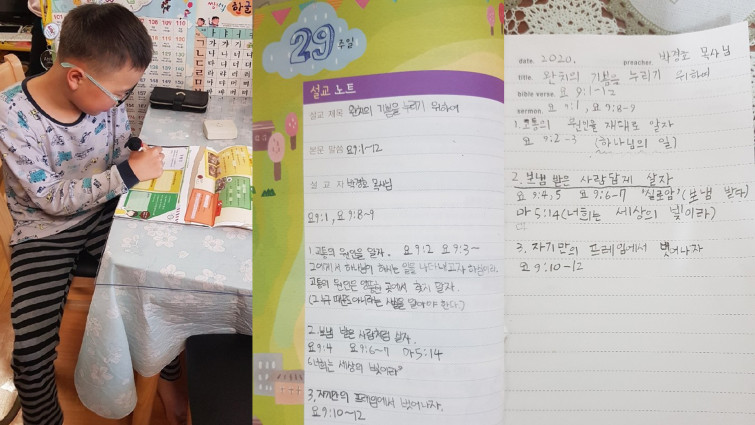 한글
29
주일
설교 노트
설교 제목 완치의 기쁨을 누리기 위하여
본문 말씀 요9:1~12
설 교 자 박경호 목사님
요9:1, 요9:8~9
1. 고통의 원인을 알자. 요9:2 요9:3~
그에게서 하나님의 하시는 일을 나타내고자 하심이라.
고통의 원인은 엉뚱한 곳에서 찾지 말자.
(그 누구 때문도 아니라는 사실을 알아야 한다.)
2. 보냄 받은 사람처럼 살자.
요9:4 요9:6~7 마5:14
너희는 세상의 빛이라"
3. 자기만의 프레임에서 벗어나자.
요9:10~12
date. 2020. preacher. 박경호 목사님
title. 완치의 기쁨을 누리기 위하여
bible verse. 요 9:1-12
sermon. 요 9:1, 요 9:8-9
1. 고통의 원인을 제대로 알자
요 9:2-3 (하나님의 일)
2. 보냄 받은 사람답게 살자
요 9:4,5 요 9:6-7 '실로암' (보냄 받다)
마 5:14 (너희는 세상의 빛이라)
3. 자기만의 프레임에서 벗어나자
요 9:10-12